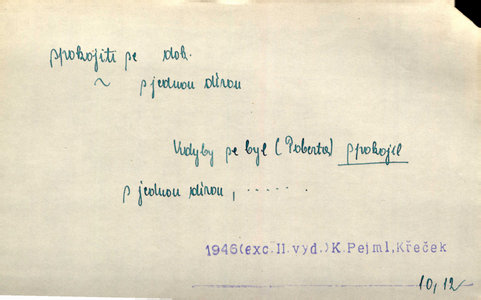 spokojiti se dok.
~ s jednou dírou
Kdyby se byl (Poberta) spokojil
s jednou dírou, ......
1946(exc.II.vyd.)K.Pejml,Křeček
10,12